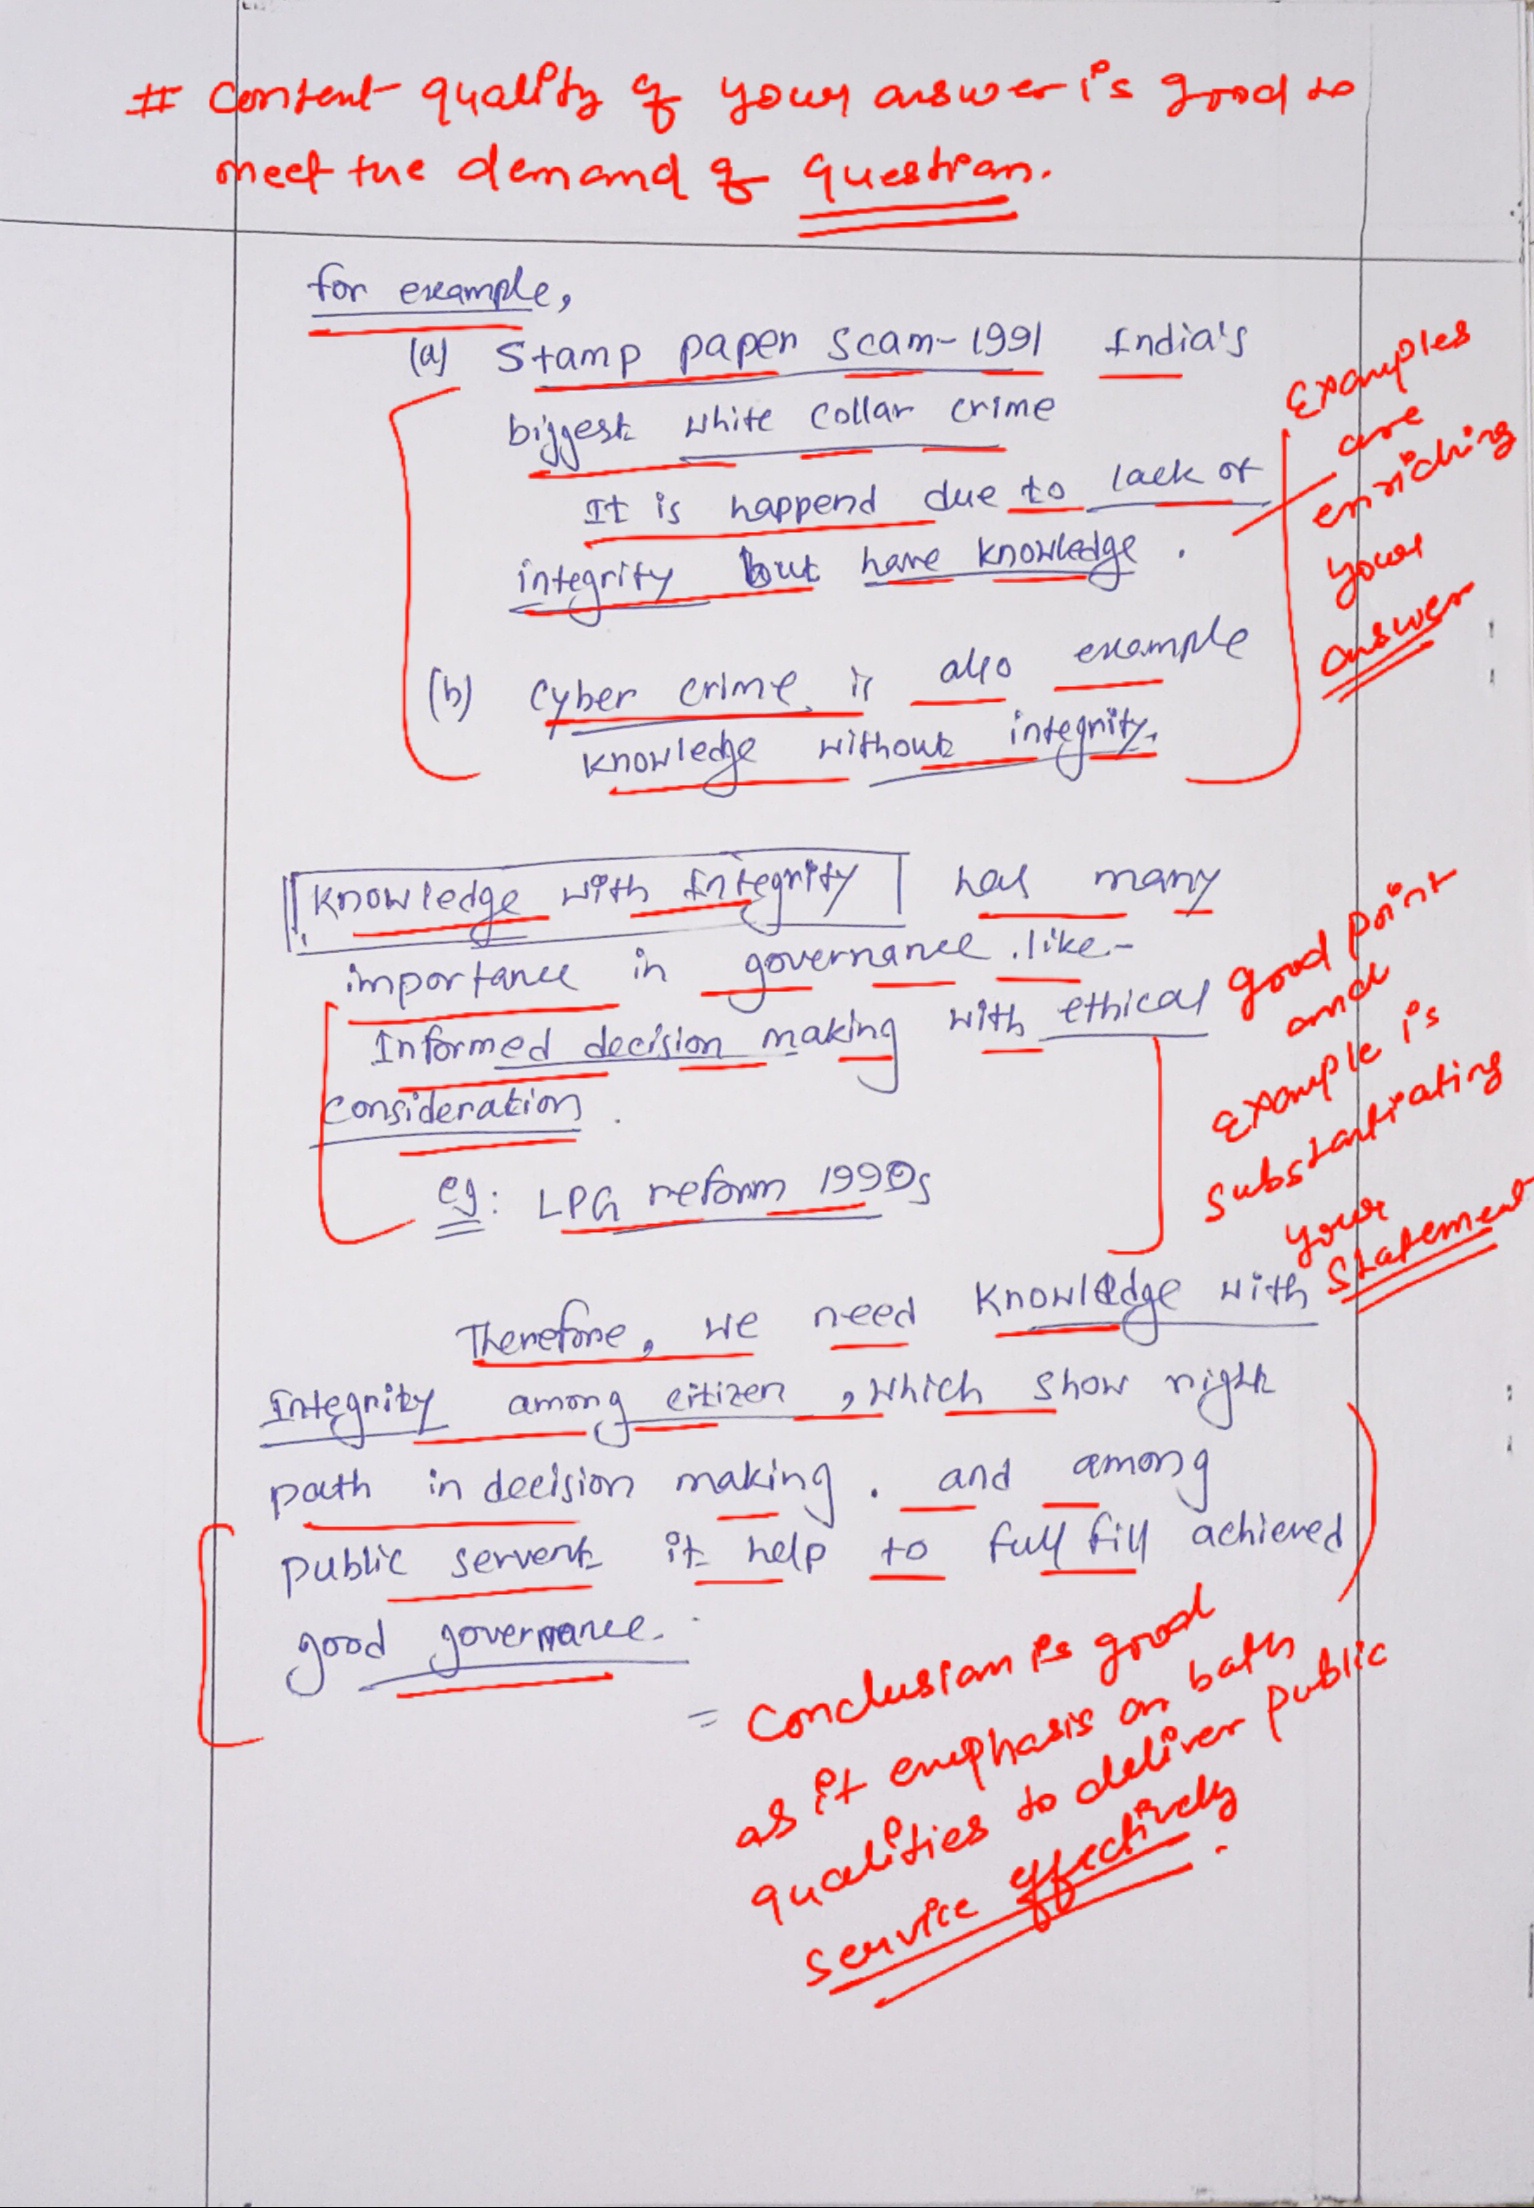 # Content quality of your answer is good to
meet the demand of question.
for example,
(a) Stamp paper scam-1991 India's
biggest white collar crime
It is happend due to lack of
integrity but have knowledge.
Examples
are
enriching
your
answer
(b) Cyber crime is also example
knowledge without integrity.
Knowledge with Integrity has many
importance in governance. like-
Informed decision making with ethical
consideration.
eg: LPG reform 1990s
good point
and
example is
substantiating
your
statement
Therefore, we need knowledge with
Integrity among citizen, which show right
path in decision making. and among
public servent it help to full fill achieved
good governance.
= Conclusion is good
as it emphasis on both
qualities to deliver public
service effectively.